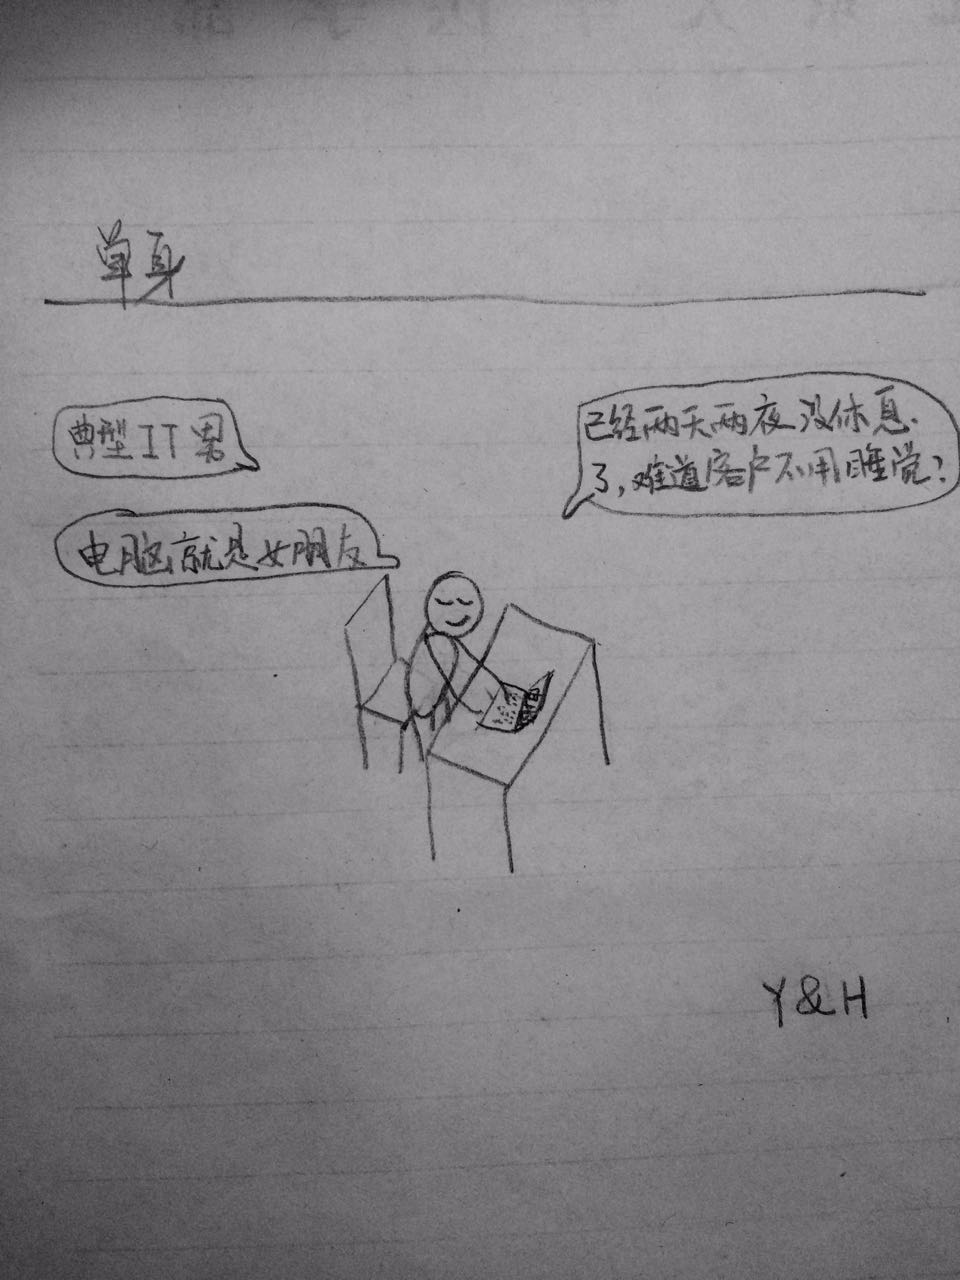 单身
典型IT男
电脑就是女朋友
已经两天两夜没休息
了，难道客户不用睡觉？
Y&H